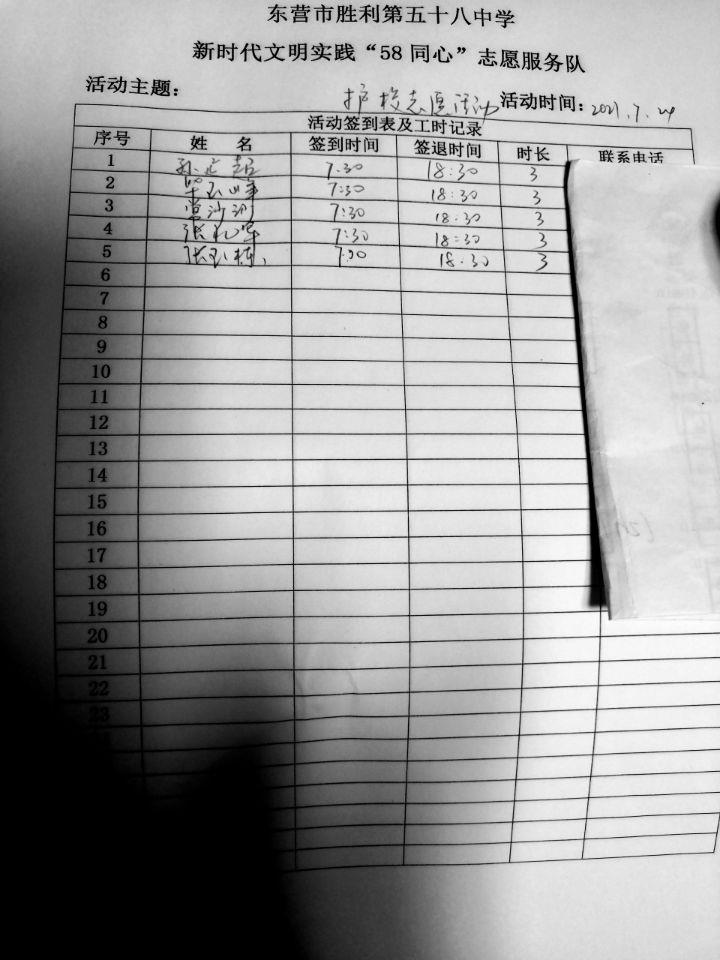 东营市胜利第五十八中学
新时代文明实践“58同心”志愿服务队
活动主题: 护校志愿活动 活动时间: 2021.7.24
活动签到表及工时记录
序号 姓 名 签到时间 签退时间 时长 联系电话
1 7:30 18:30 3
2 7:30 18:30 3
3 7:30 18:30 3
4 张 7:30 18:30 3
5 张玉栋 7:30 18:30 3
6
7
8
9
10
11
12
13
14
15
16
17
18
19
20
21
22
23